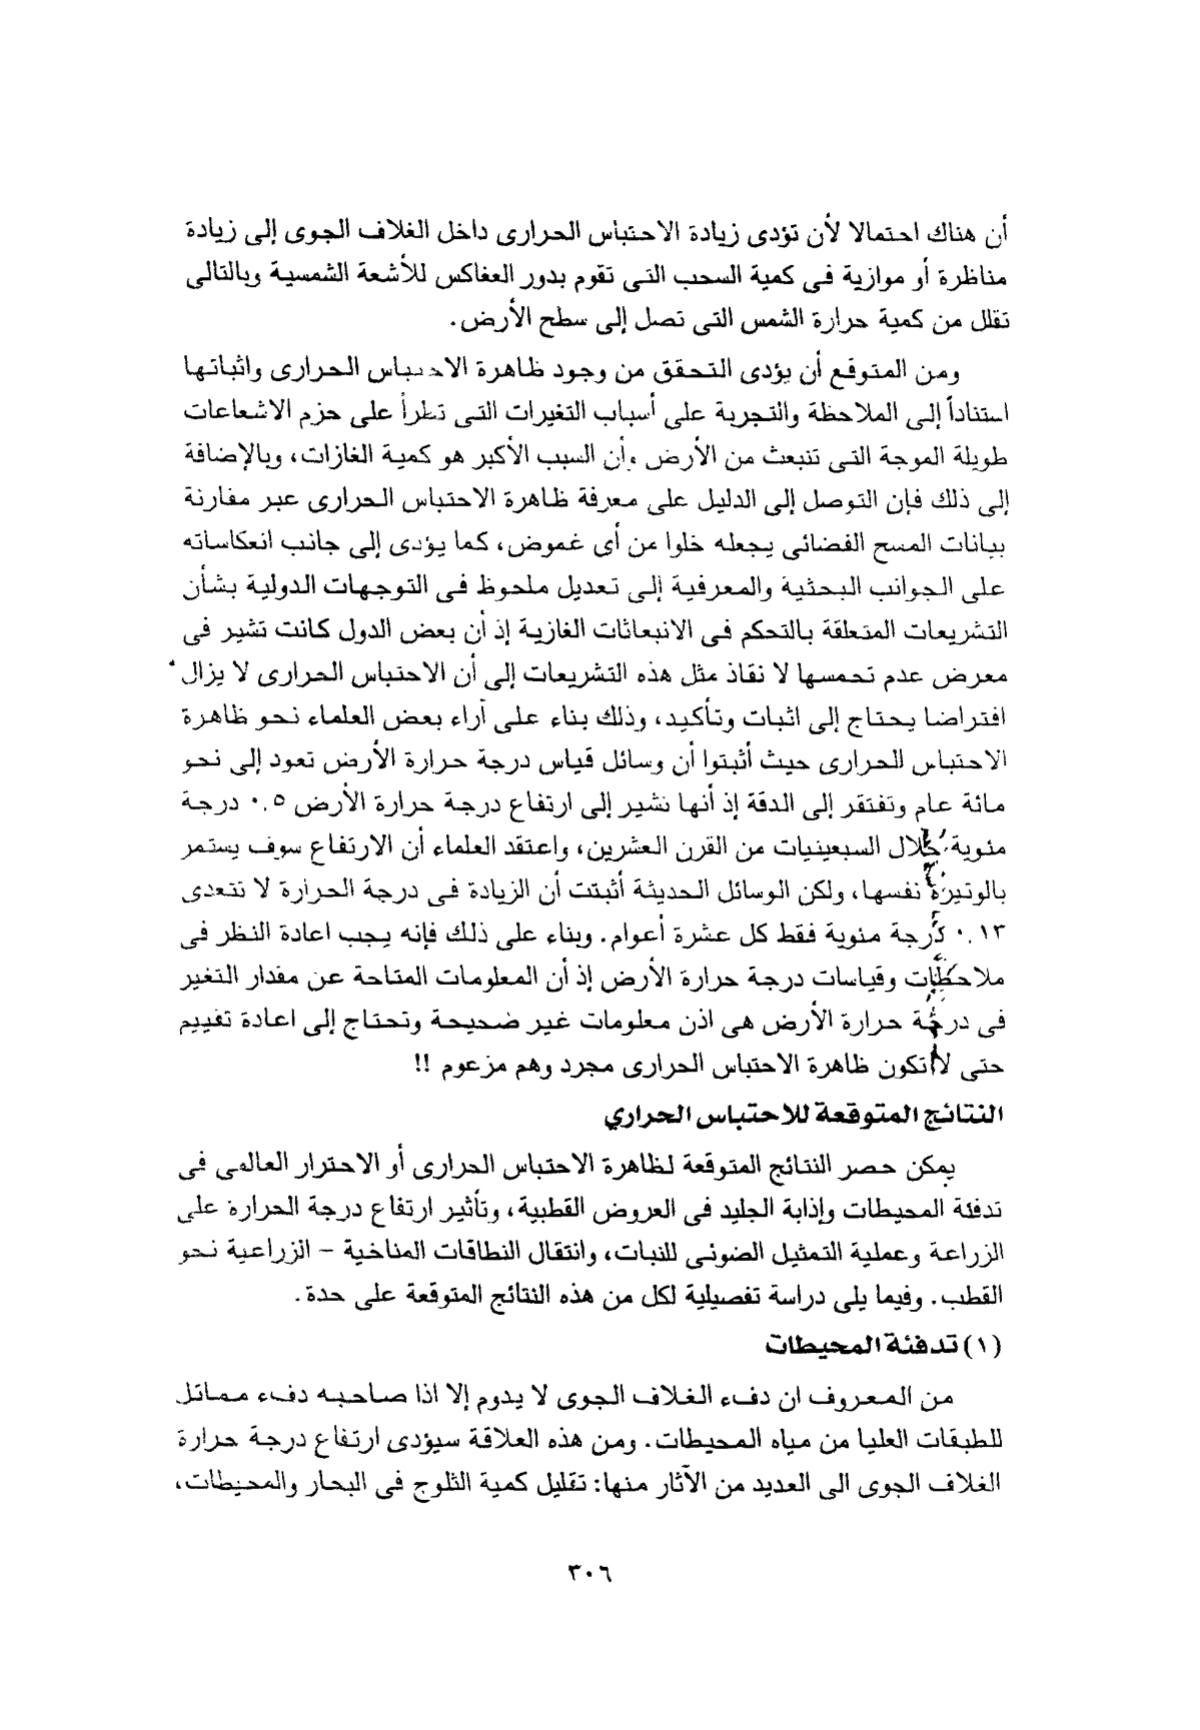 أن هناك احتمالا لأن تؤدى زيادة الاحتباس الحرارى داخل الغلاف الجوى إلى زيادة
مناظرة أو موازية فى كمية السحب التى تقوم بدور العفاكس للأشعة الشمسية وبالتالى
تقلل من كمية حرارة الشمس التى تصل إلى سطح الأرض.
ومن المتوقع أن يؤدى التحقق من وجود ظاهرة الاحتباس الحرارى واثباتها
استناداً إلى الملاحظة والتجربة على أسباب التغيرات التى تطرأ على حزم الاشعاعات
طويلة الموجة التى تنبعث من الأرض وأن السبب الأكبر هو كمية الغازات، وبالإضافة
إلى ذلك فإن التوصل إلى الدليل على معرفة ظاهرة الاحتباس الحرارى عبر مقارنة
بيانات المسح الفضائى يجعله خلوا من أى غموض، كما يؤدى إلى جانب انعكاساته
على الجوانب البحثية والمعرفية إلى تعديل ملحوظ فى التوجهات الدولية بشأن
التشريعات المتعلقة بالتحكم فى الانبعاثات الغازية إذ أن بعض الدول كانت تشير فى
معرض عدم تحمسها لا نقاذ مثل هذه التشريعات إلى أن الاحتباس الحرارى لا يزال
افتراضا يحتاج إلى اثبات وتأكيد، وذلك بناء على آراء بعض العلماء نحو ظاهرة
الاحتباس الحرارى حيث أثبتوا أن وسائل قياس درجة حرارة الأرض تعود إلى نحو
مائة عام وتفتقر إلى الدقة إذ أنها تشير إلى ارتفاع درجة حرارة الأرض ٠.٥ درجة
مئوية خلال السبعينيات من القرن العشرين، واعتقد العلماء أن الارتفاع سوف يستمر
بالوتيرة نفسها، ولكن الوسائل الحديثة أثبتت أن الزيادة فى درجة الحرارة لا تتعدى
٠.١٣ درجة مئوية فقط كل عشرة أعوام. وبناء على ذلك فإنه يجب اعادة النظر فى
ملاحظات وقياسات درجة حرارة الأرض إذ أن المعلومات المتاحة عن مقدار التغير
فى درجة حرارة الأرض هى اذن معلومات غير صحيحة وتحتاج إلى اعادة تقييم
حتى لا تكون ظاهرة الاحتباس الحرارى مجرد وهم مزعوم !!
النتائج المتوقعة للاحتباس الحراري
يمكن حصر النتائج المتوقعة لظاهرة الاحتباس الحرارى أو الاحترار العالمى فى
تدفئة المحيطات وإذابة الجليد فى العروض القطبية، وتأثير ارتفاع درجة الحرارة على
الزراعة وعملية التمثيل الضوئى للنبات، وانتقال النطاقات المناخية – الزراعية نحو
القطب. وفيما يلى دراسة تفصيلية لكل من هذه النتائج المتوقعة على حدة.
(١) تدفئة المحيطات
من المعروف ان دفء الغلاف الجوى لا يدوم إلا اذا صاحبه دفء مماثل
للطبقات العليا من مياه المحيطات. ومن هذه العلاقة سيؤدى ارتفاع درجة حرارة
الغلاف الجوى الى العديد من الآثار منها: تقليل كمية الثلوج فى البحار والمحيطات،
٣٠٦